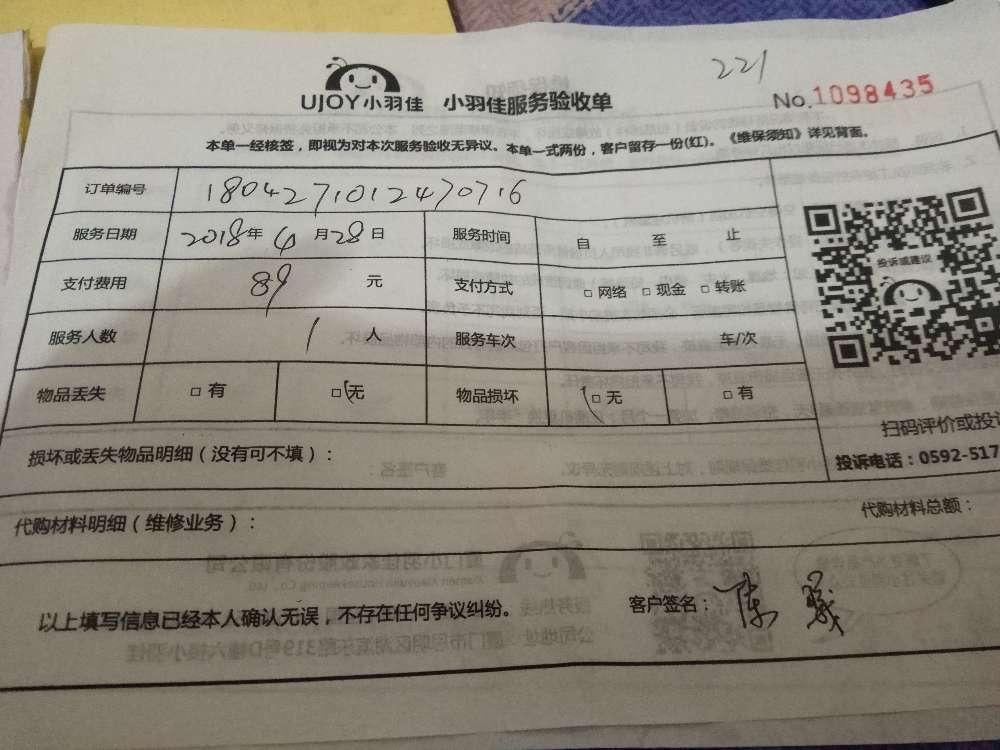 221
UJOY小羽佳 小羽佳服务验收单 No.1098435
本单一经核签，即视为对本次服务验收无异议。本单一式两份，客户留存一份(红)。《维保须知》详见背面。
订单编号 1804271012470716
服务日期 2018年4月28日 服务时间 自 至 止
投诉或建议
支付费用 89 元 支付方式 □网络 □现金 □转账
服务人数 1 人 服务车次 车/次
物品丢失 □有 □无 物品损坏 □无 □有
扫码评价或投诉
损坏或丢失物品明细（没有可不填）：
投诉电话：0592-517
代购材料明细（维修业务）： 代购材料总额：
以上填写信息已经本人确认无误，不存在任何争议纠纷。 客户签名：陈